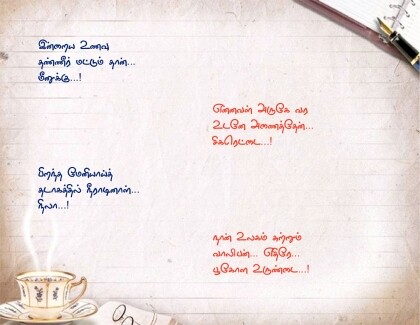 இன்றைய உணவு
தண்ணீர் மட்டும் தான்...
மீனுக்கு...!
என்னவள் அருகே வர
உடனே அணைத்தேன்...
சிகரெட்டை...!
பிறந்த மேனியாய்
தடாகத்தில் நீராடினாள்...
நிலா...!
நான் உலகம் சுற்றும்
வாலிபன்... எதிரே...
பூகோள உருண்டை...!